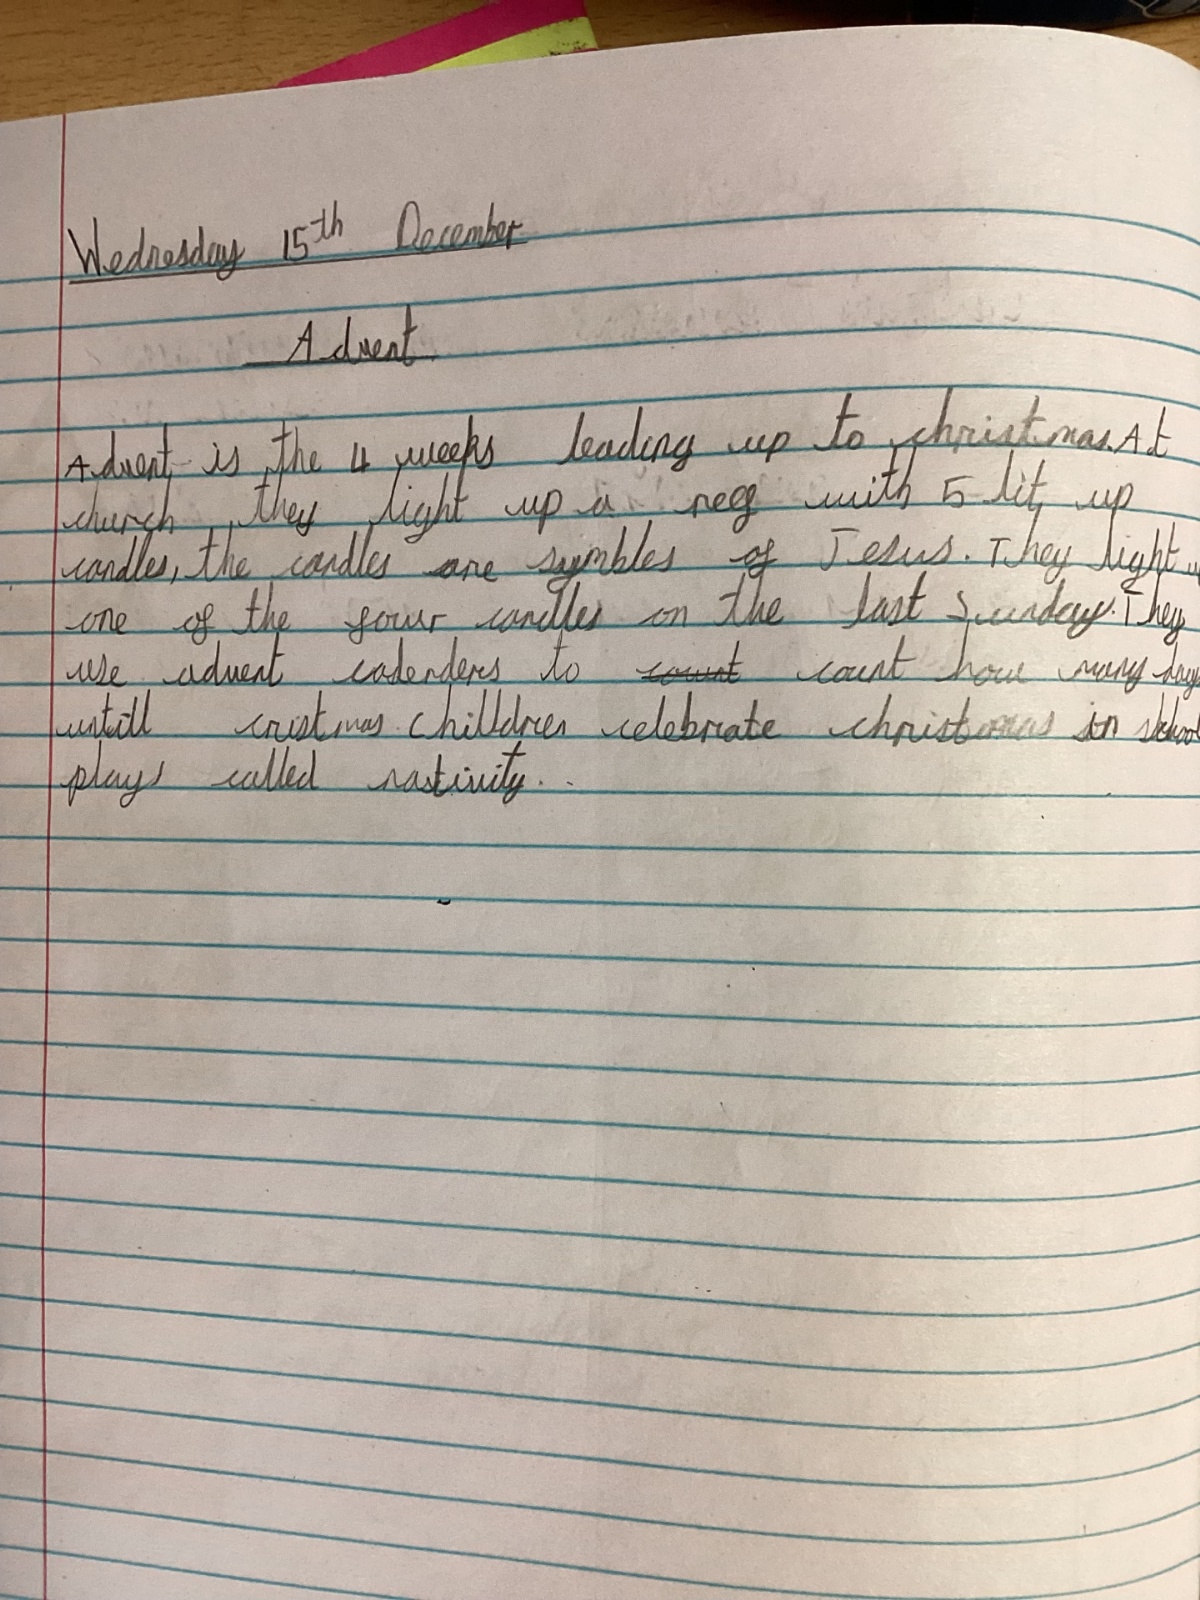 Wednesday 15th December
Advent
Advent is the 4 weeks leading up to christmas. At
church they light up a reeg with 5 lit up
candles, the candles are symbles of Jesus. They light
one of the four candles on the last Sunday. They
use advent cadenders to count count how many days
untill cristmas. Chilldren celebrate christomas in school
plays called nastivity.